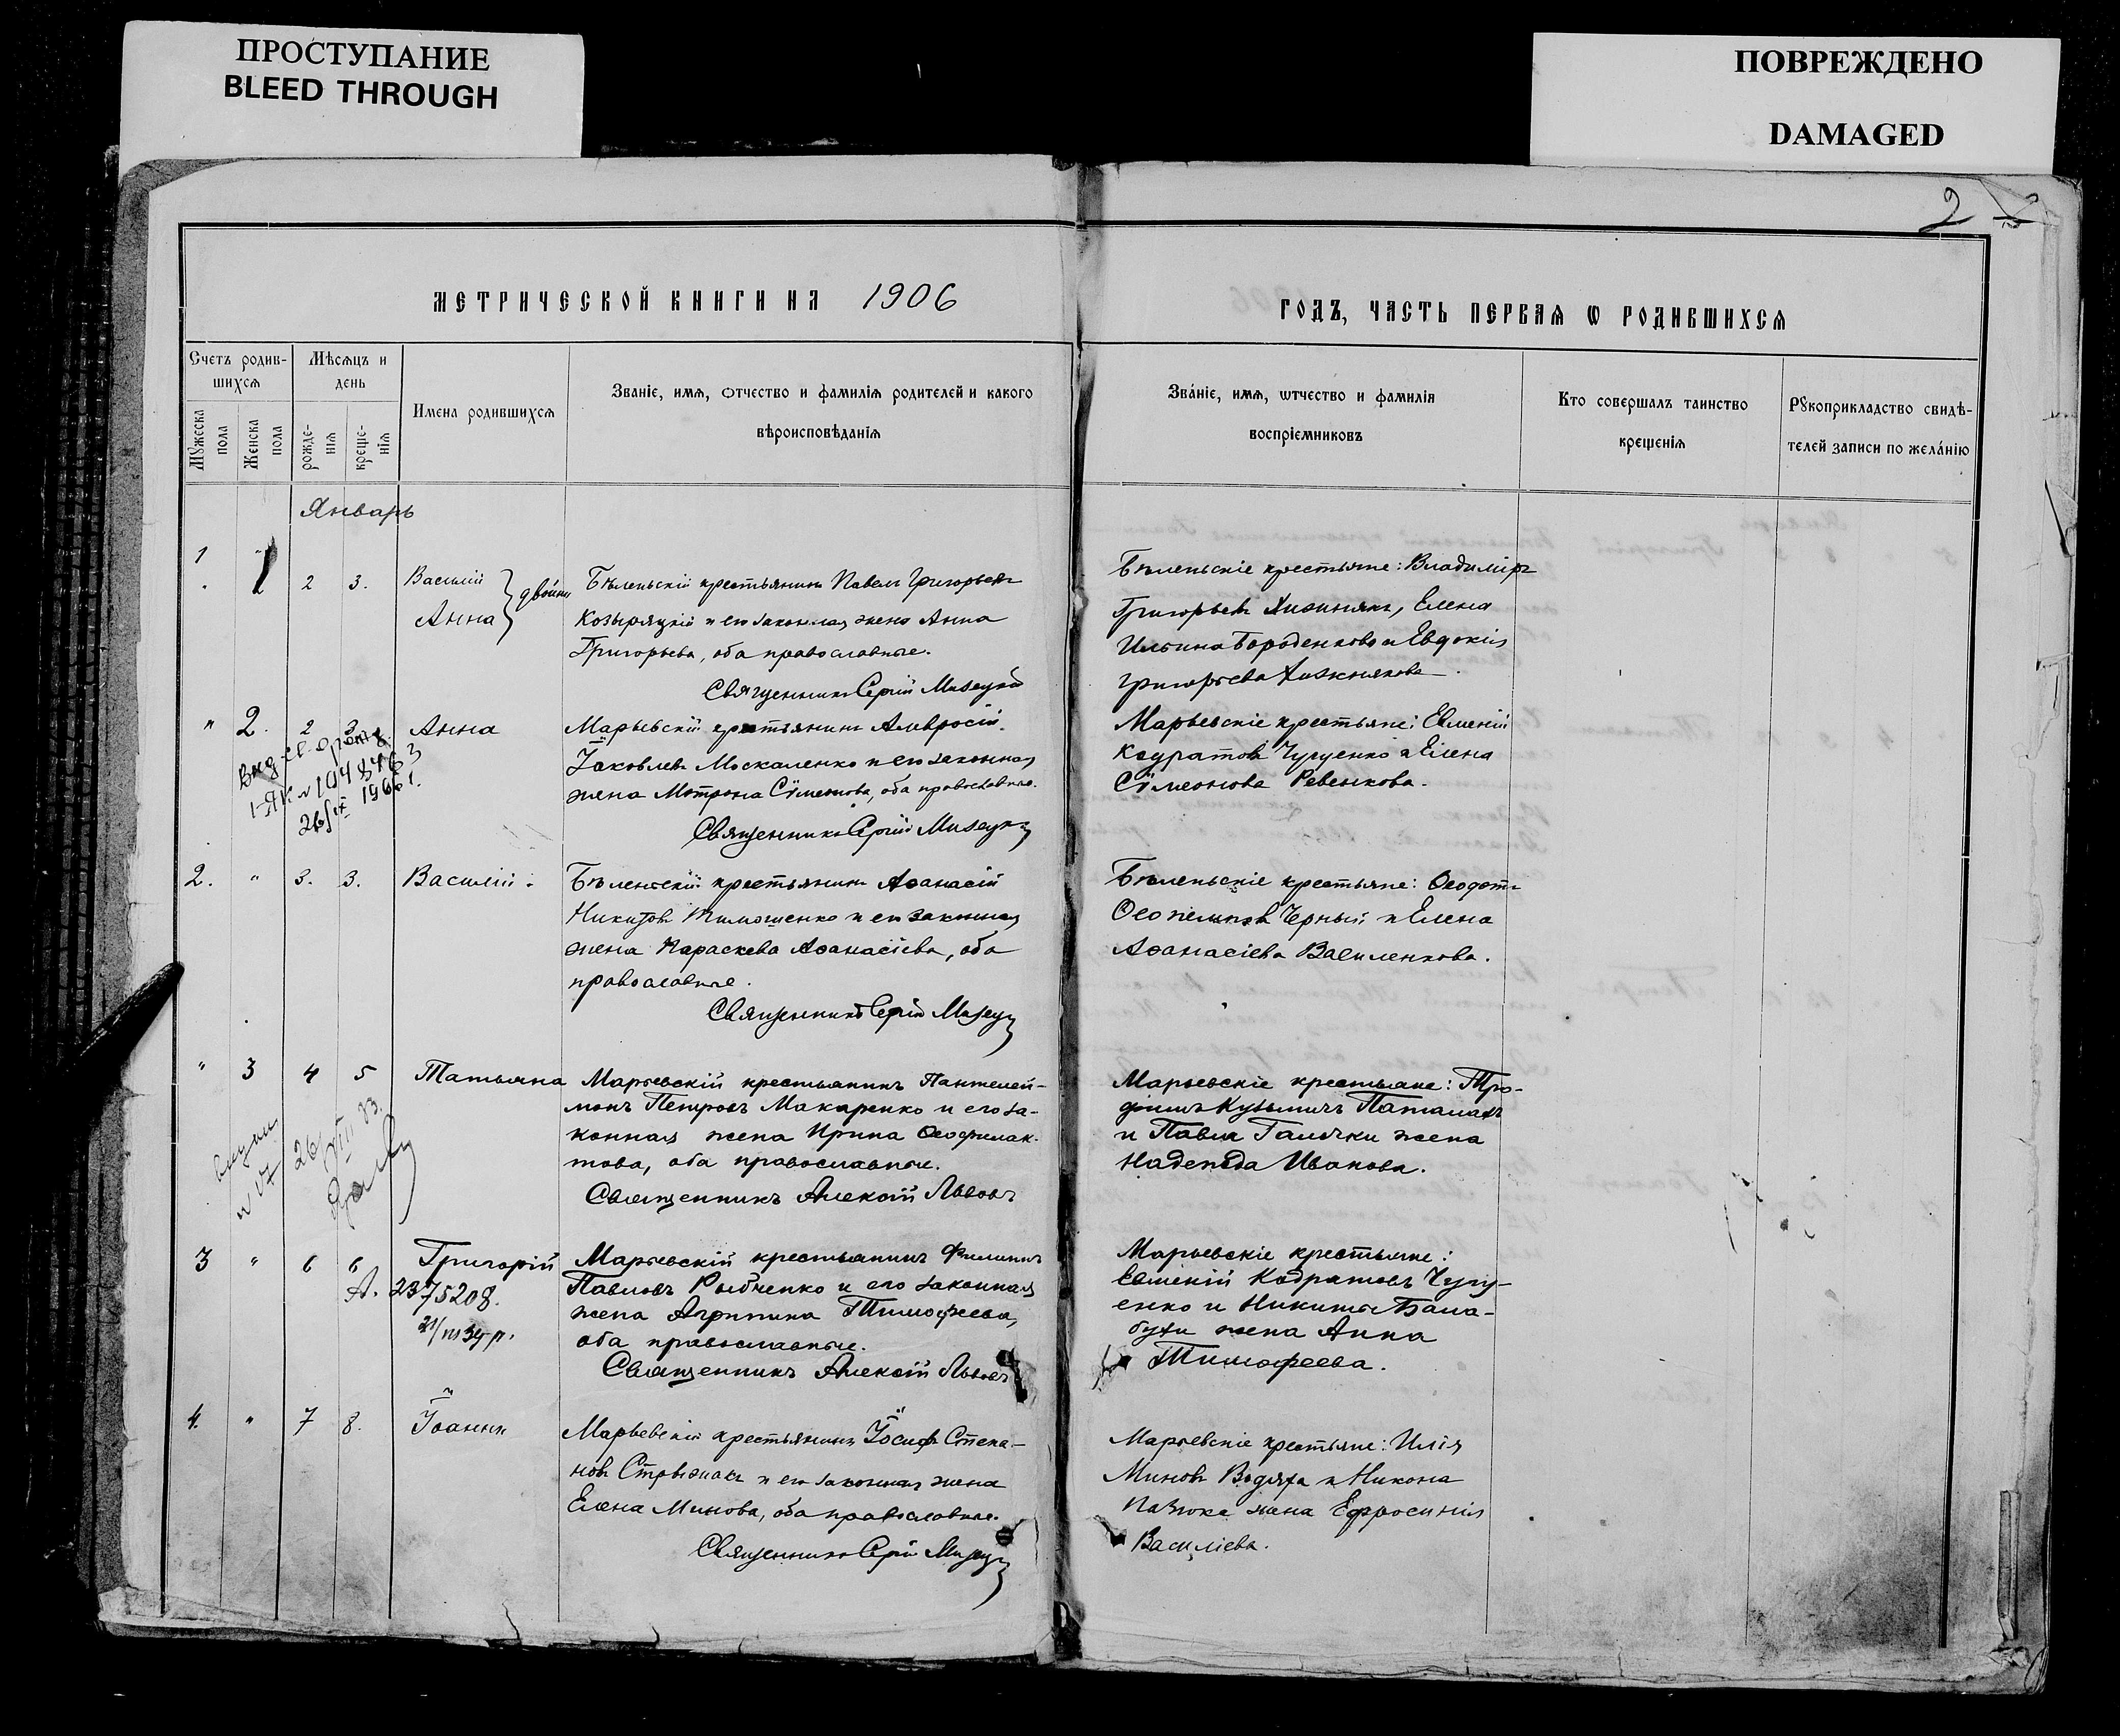 ПРОСТУПАНИЕ
BLEED THROUGH
ПОВРЕЖДЕНО
DAMAGED
2
МЕТРИЧЕСКОЙ КНИГИ НА 1906
ГОДЪ, ЧАСТЬ ПЕРВАѦ Ѡ РОДИВШИХСѦ
Счетъ родив-
шихсѧ
Мꙋжеска
пола
Женска
пола
Мѣсѧцъ и
день
рожде-
нїѧ
креще-
нїѧ
Имена родившихсѧ
Званїе, имѧ, отчество и фамилїѧ родителей и какого
вѣроисповѣданїѧ
Зва́нїе, имѧ, ѡтчество и фамилїѧ
воспрїемниковъ
Кто совершалъ таинство
крещенїѧ
Рꙋкоприкладство свидѣ-
телей записи по жела́нїю
Январь
1 "
1 2 3. Василій
Анна
двойни
Бѣленьскій крестьянинъ Павелъ Григорьевъ
Козыряцкій и его законная жена Анна
Григорьева, оба православные.
Священникъ Сергій
Бѣленьскіе крестьяне: Владиміръ
Григорьевъ Елена
Ильина Бороденкова и Евдокія
Григорьева Хижнякова.
" 2. 2 3. Анна
Марьевскій крестьянинъ Амвросій
Іаковлевъ Москаленко и его законная
жена Мотрона Сѵмеонова, оба православные.
Священникъ Сергій
Марьевскіе крестьяне: Евменій
Кодратовъ Чугуенко и Елена
Сѵмеонова Ревенкова.
1-ЯК № 1048463
26/IX 1966 г.
2. " 3. 3. Василій.
Бѣленьскій крестьянинъ Аѳанасій
Никитовъ Тимошенко и его законная
жена Параскева Аѳанасіева, оба
православные.
Священникъ Сергій
Бѣленьскіе крестьяне: Ѳеодотъ
Черный и Елена
Аѳанасіева Василенкова.
" 3 4 5 Татьяна
Марьевскій крестьянинъ Пантелей-
монъ Петровъ Макаренко и его за-
конная жена Ирина Ѳеофилак-
това, оба православные.
Священникъ Алексій Львовъ
Марьевскіе крестьяне: Тро-
фимъ Кузьмичъ Паталахъ
и Павла Галички жена
Надежда Иванова.
26
VIII 83.
3 " 6 6 Григорій
Марьевскій крестьянинъ Филиппъ
Павловъ Рыбченко и его законная
жена Агрипина Тимофеева,
оба православные.
Священникъ Алексій Львовъ
Марьевскіе крестьяне:
Евменій Кодратовъ Чугу-
енко и Никиты Бала-
бухи жена Анна
Тимофеева.
А. 2375208.
21/III 34 р.
4. " 7 8. Іоаннъ
Марьевскій крестьянинъ Іосифъ Степа-
новъ Стрижакъ и его законная жена
Елена Минова, оба православные.
Священникъ Сергій
Марьевскіе крестьяне: Илія
Миновъ Водяха и Никона
жена Ефросинія
Василіева.